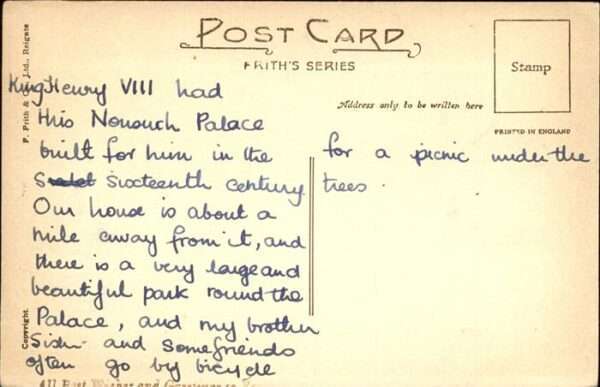 POST CARD
FRITH'S SERIES
Stamp
Address only to be written here
PRINTED IN ENGLAND
F. Frith & Co., Ltd., Reigate
Copyright.
King Henry VIII had
this Nonsuch Palace
built for him in the
sixteenth century
Our house is about a
mile away from it, and
there is a very large and
beautiful park round the
Palace, and my brother
Sister and some friends
often go by bicycle
for a picnic under the
trees.
All Best Wishes and Greetings to